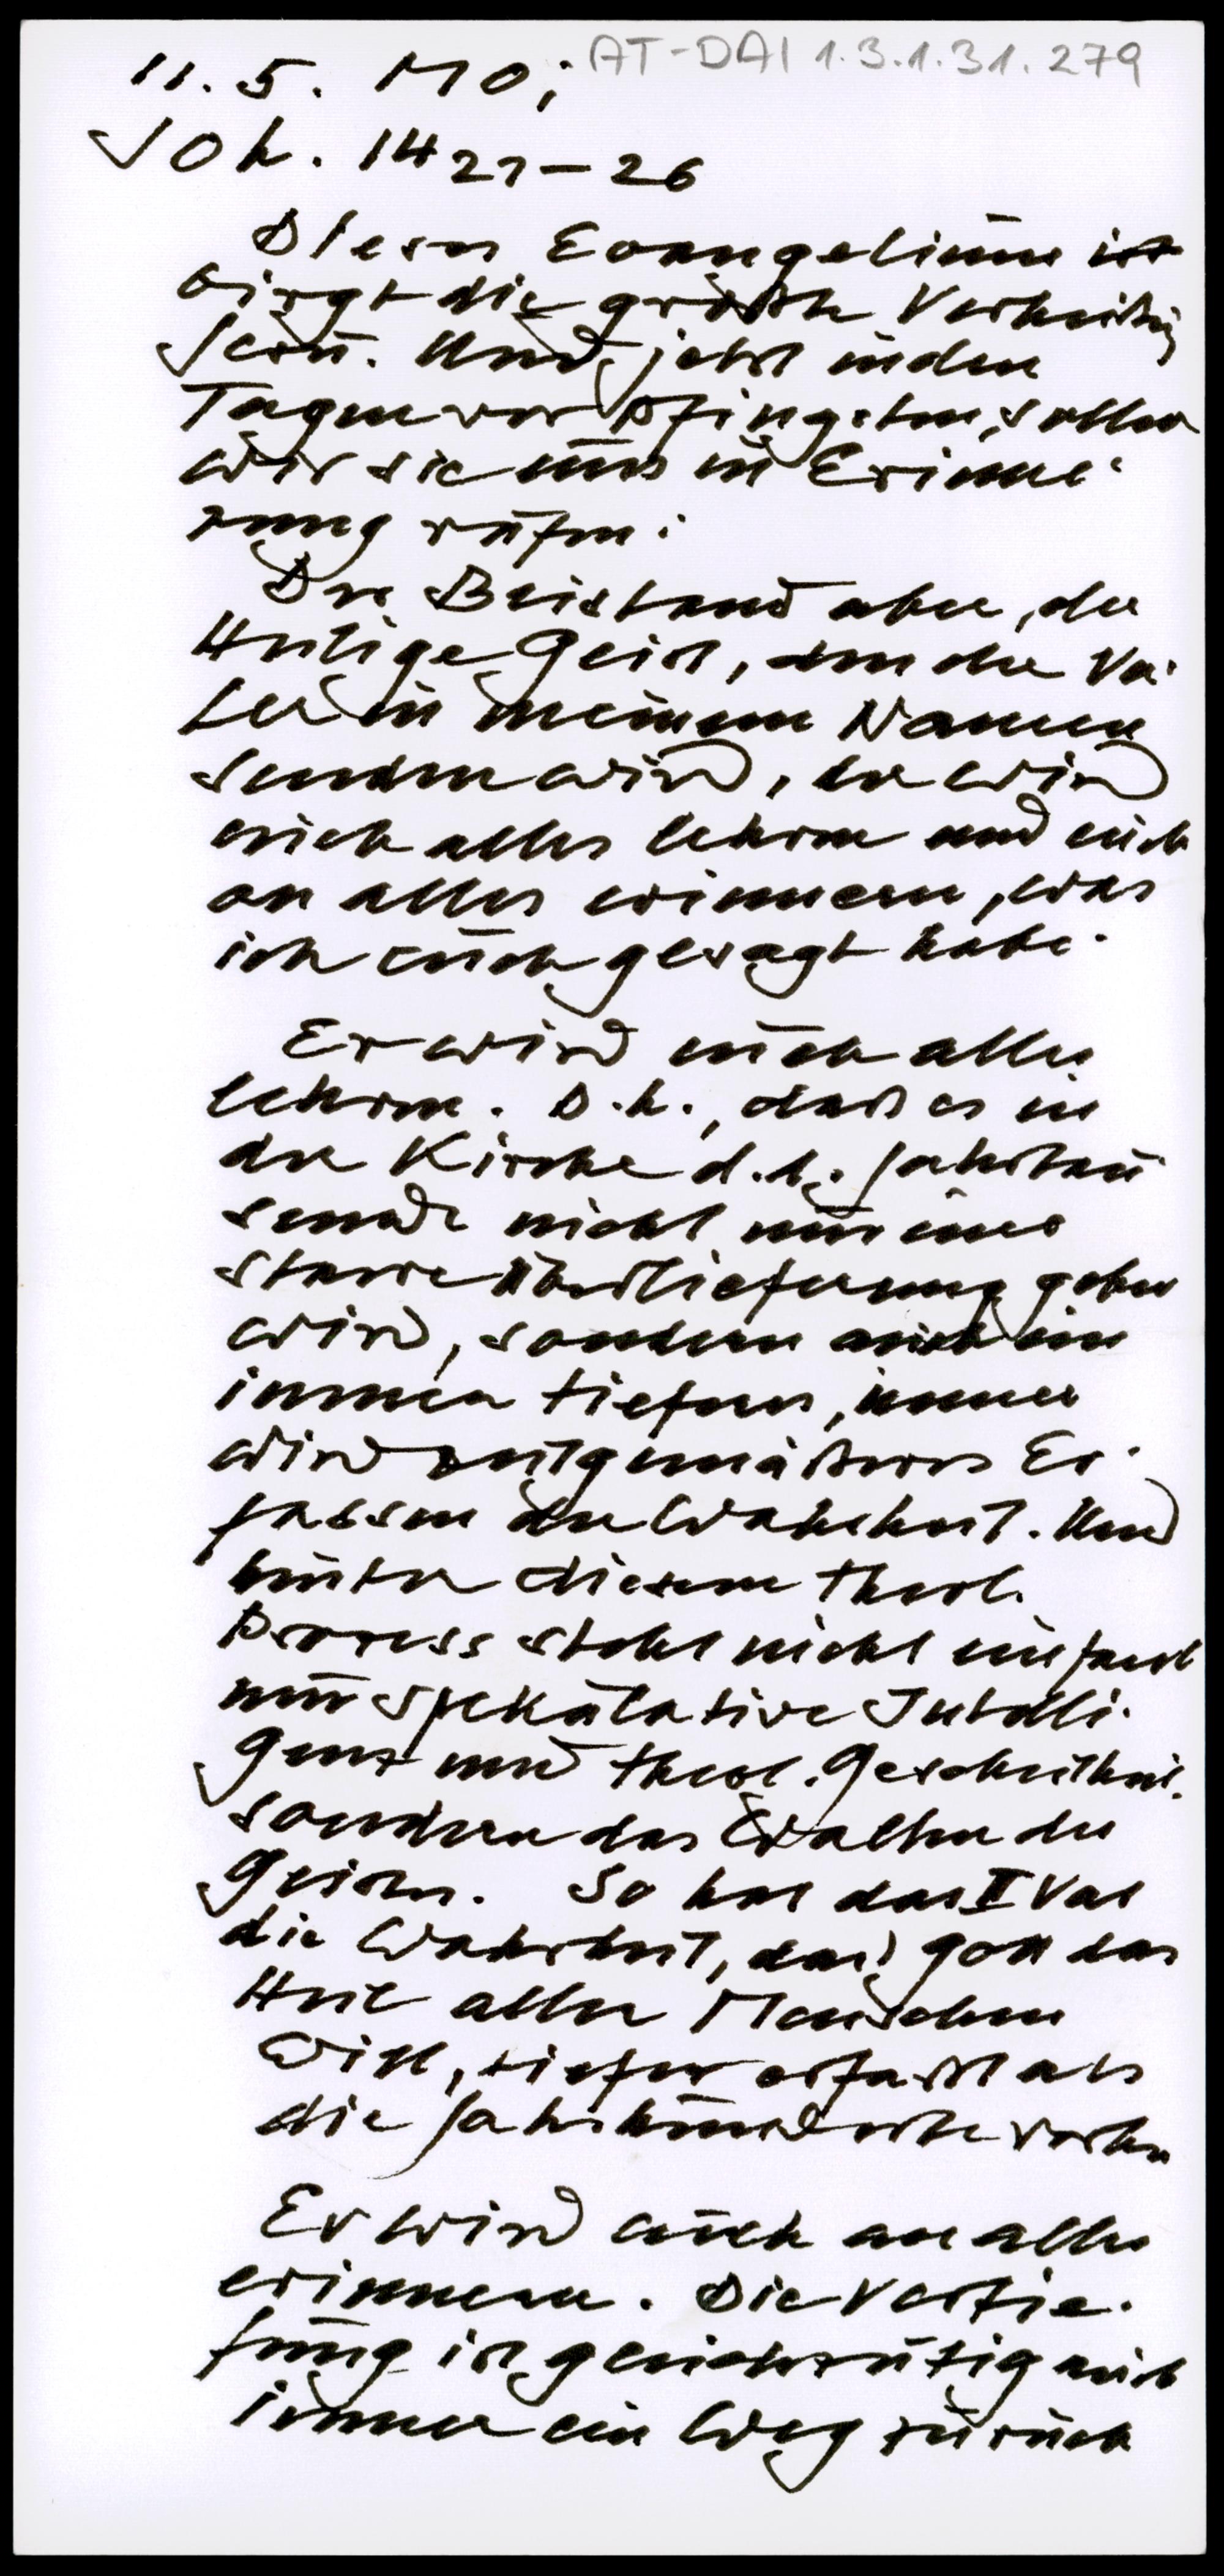 11. 5. MO; AT-DAI 1.3.1.31.279
Joh. 14 21-26
Dieses Evangelium ist
birgt die größte Verheißung
Jesu. Und jetzt in den
Tagen vor Pfingsten, sollen
wir sie uns in Erinne-
rung rufen:
Der Beistand aber, der
Heilige Geist, den der Va-
ter in meinem Namen
senden wird, der wird
euch alles lehren und euch
an alles erinnern, was
ich euch gesagt habe.
Er wird euch alles
lehren. D.h., daß es in
der Kirche d.h. Jahrtau
sende nicht nur eine
starre Überlieferung geben
wird, sondern auch ein
immer tieferes, immer
wird zeitgemäßeres Er-
fassen der Wahrheit. Und
hinter diesem theol.
Prozess steht nicht einfach
nur spekulative Intelli-
genz und theol. Gescheitheit.
sondern das Walten des
Geistes. So hat das II Vat
die Wahrheit, daß Gott das
Heil aller Menschen
will, tiefer erfaßt als
die Jahrhunderte vorher
Er wird euch an alles
erinnern. Die Vertie-
fung ist gleichzeitig auch
immer ein Weg zurück